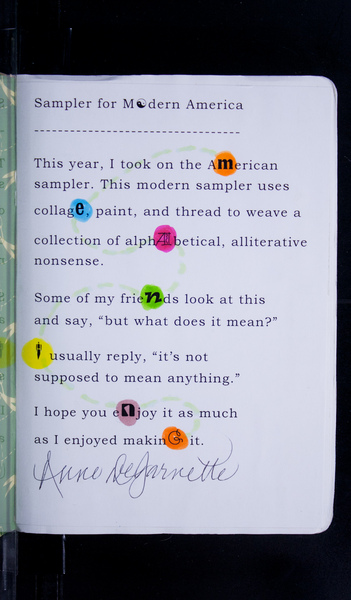 Sampler for M☯dern America
-------------------------------
This year, I took on the American
sampler. This modern sampler uses
collage, paint, and thread to weave a
collection of alphAbetical, alliterative
nonsense.
Some of my friends look at this
and say, “but what does it mean?”
I usually reply, “it’s not
supposed to mean anything.”
I hope you enjoy it as much
as I enjoyed makinG it.
Anne DeJarnette